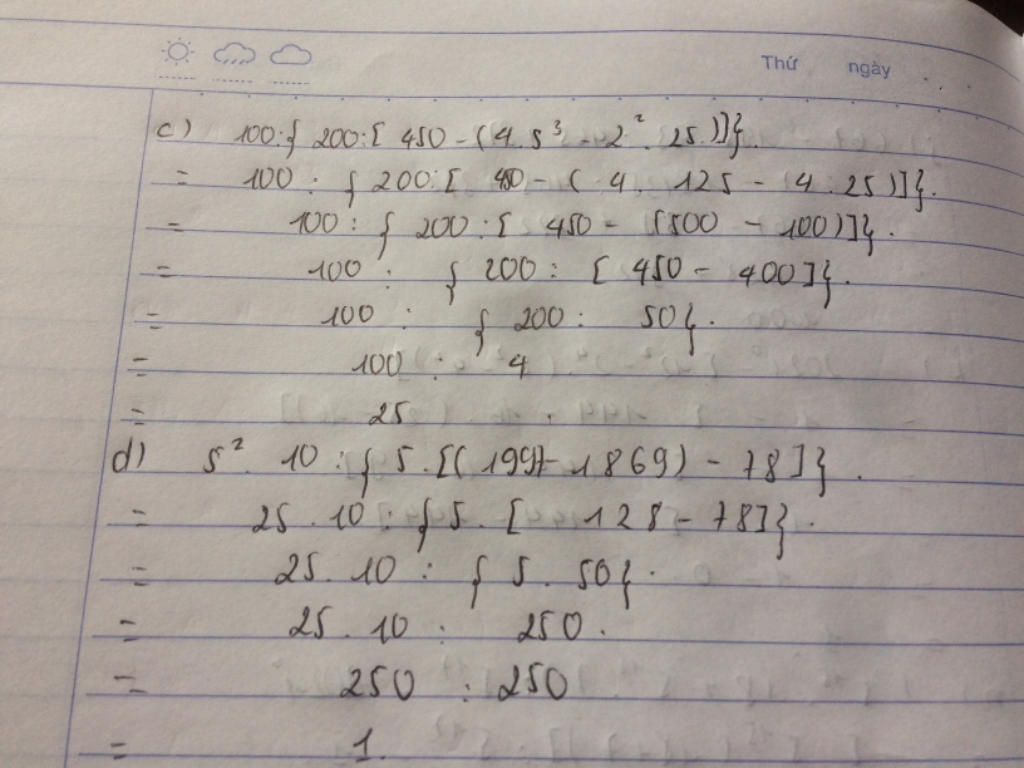 Thứ ngày
c) 100:{ 200:[ 450 - (4.5³ - 2². 25.)]}.
= 100 : { 200:[ 450 - ( 4. 125 - 4. 25)]}.
= 100 : { 200 :[ 450 - (500 - 100)]}.
= 100 : { 200 : [ 450 - 400]}.
= 100 : { 200 : 50}.
= 100 : 4
= 25 .
d) 5². 10 : { 5. [(1997 - 1869) - 78]}.
= 25. 10 : { 5. [ 128 - 78]}.
= 25. 10 : { 5. 50}.
= 25. 10 : 250.
= 250 : 250
= 1.